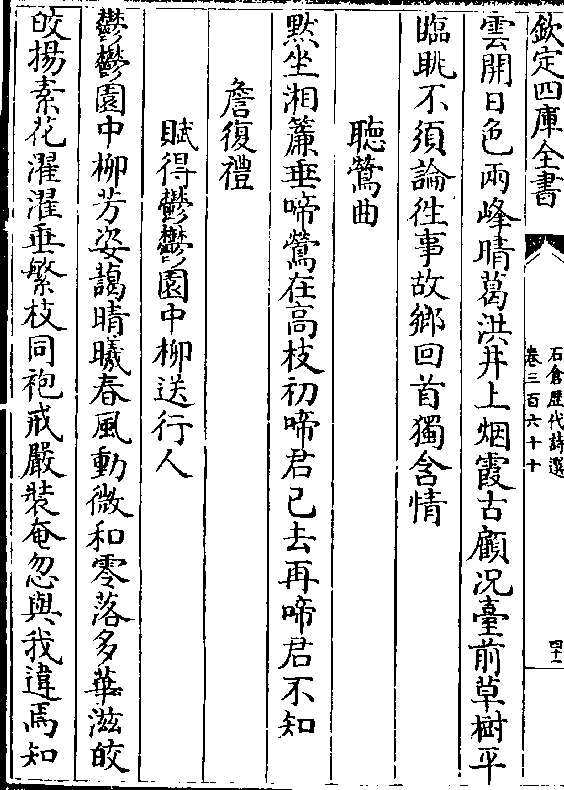 欽定四庫全書
石倉歷代詩選
卷三百六十十
四十一
雲開日色兩峰晴葛洪井上烟霞古顧况臺前草樹平
臨眺不須論徃事故鄉回首獨含情
聽鶯曲
默坐湘簾垂啼鶯在高枝初啼君已去再啼君不知
詹復禮
賦得鬱鬱園中柳送行人
鬱鬱園中柳芳姿藹晴曦春風動微和零落多華滋皎
皎揚素花濯濯垂繁枝同袍戒嚴裝奄忽與我違焉知